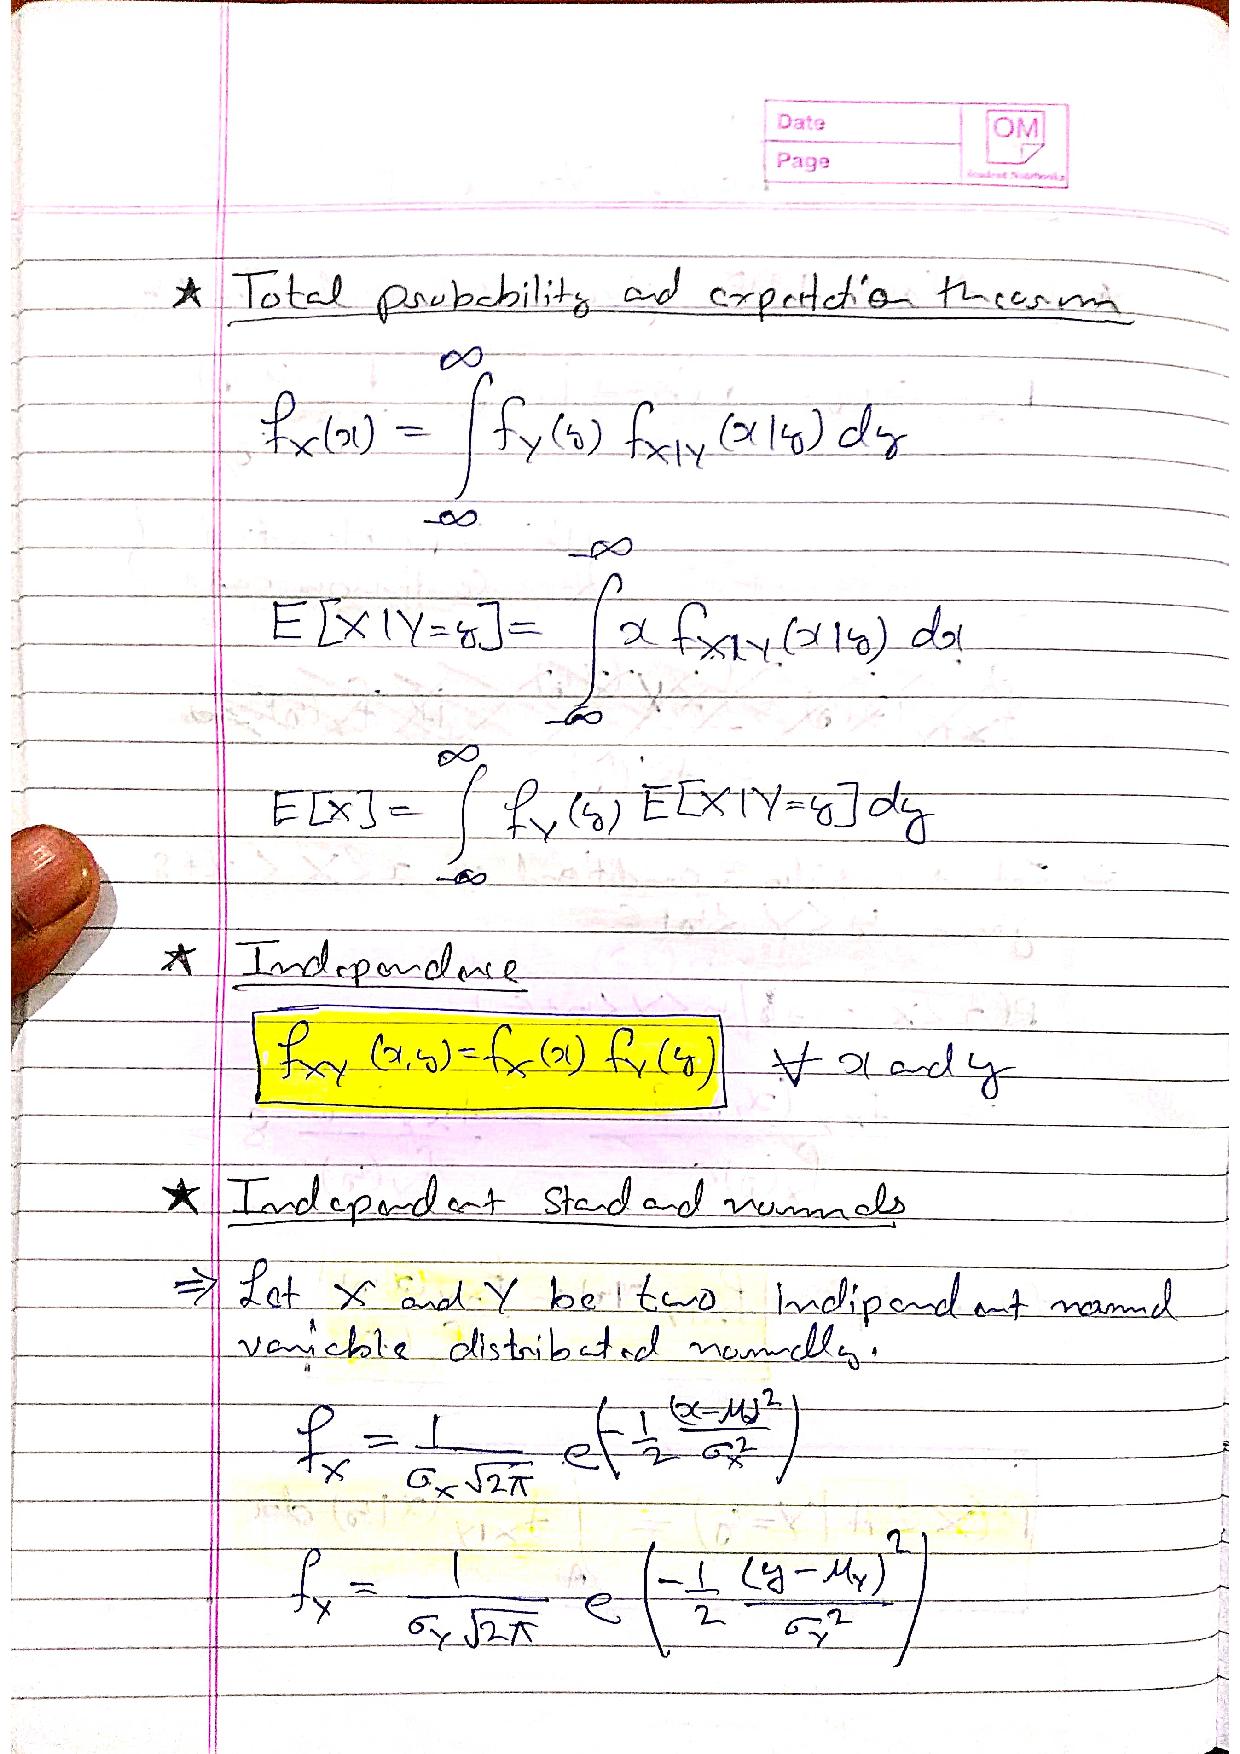 Date
Page
OM
★ Total probability and expectation theorem
∞
f_X(x) = ∫ f_Y(y) f_X|Y (x|y) dy
-∞
-∞
E[X|Y=y] = ∫ x f_X|Y (x|y) dx
-∞
∞
E[X] = ∫ f_Y(y) E[X|Y=y] dy
-∞
★ Independence
f_XY (x,y) = f_X(x) f_Y(y) ∀ x and y
★ Independent Standard normals
⇒ Let X and Y be two Indipendent normal
variable distributed normally.
f_X = 1/(σ_X √2π) e(-1/2 (x-μ_x)²/σ_X²)
f_Y = 1/(σ_Y √2π) e(-1/2 (y-μ_Y)²/σ_Y²)